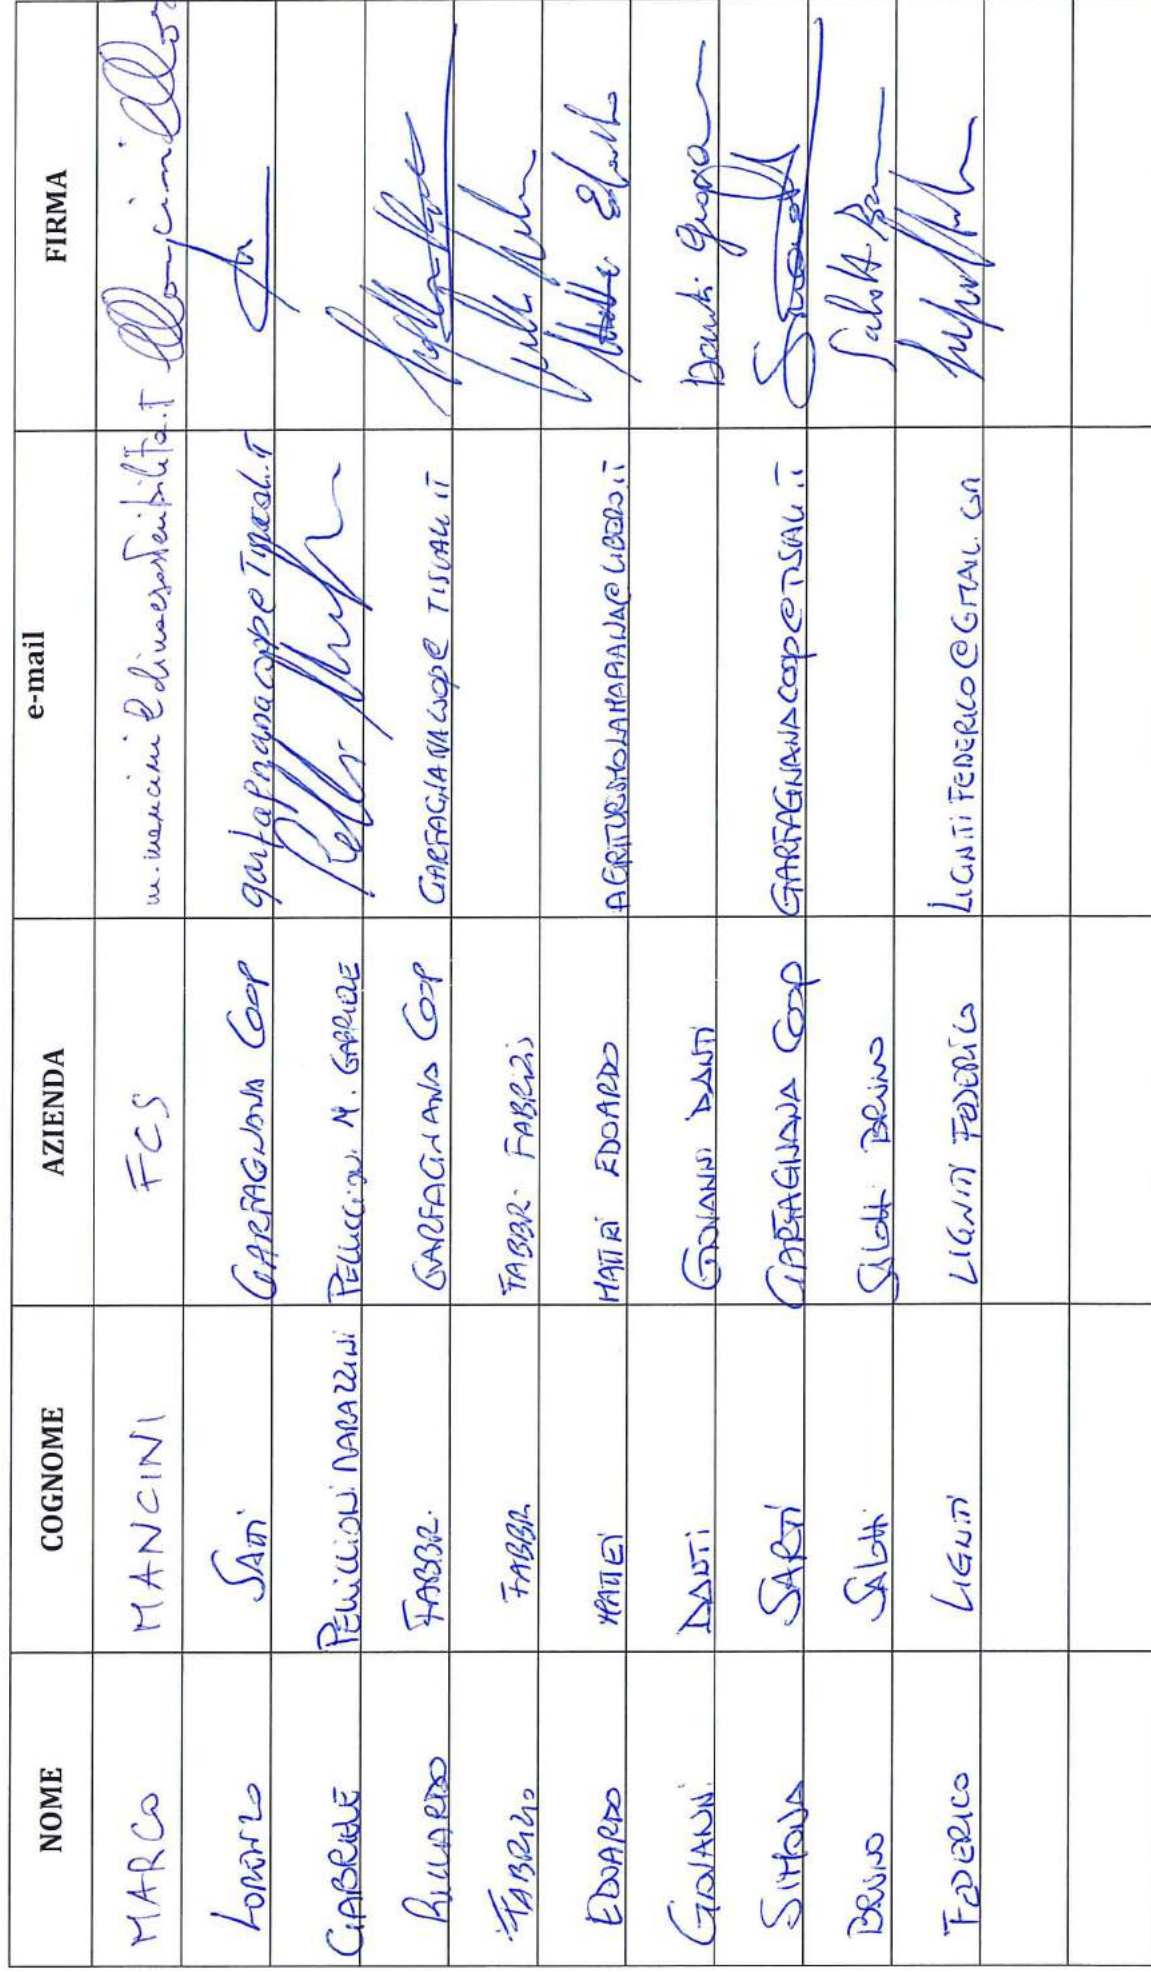 NOME COGNOME AZIENDA e-mail FIRMA
MARCO MANCINI FCS
LORENZO SARTI GARFAGNANA COOP garfagnanacoop@Tiscali.it
GABRIELE PELLICCIONI MARAZZINI PELLICCIONI M. GABRIELE
RICCARDO FABBRI GARFAGNANA COOP GARFAGNANACOOP@TISCALI.IT
FABRIZIO FABBRI FABBRI FABRIZIO
EDOARDO MATTEI MATTEI EDOARDO AGRITURISMOLAMARIANA@LIBERO.IT Mattei Edoardo
GIOVANNI DANTI GIOVANNI DANTI Danti Giovanni
SIMONA SARTI GARFAGNANA COOP GARFAGNANACOOP@TISCALI.IT
BRUNO SALOTTI SALOTTI BRUNO Salotti Bruno
FEDERICO LIGNITI LIGNITI FEDERICO LIGNITIFEDERICO@GMAIL.COM